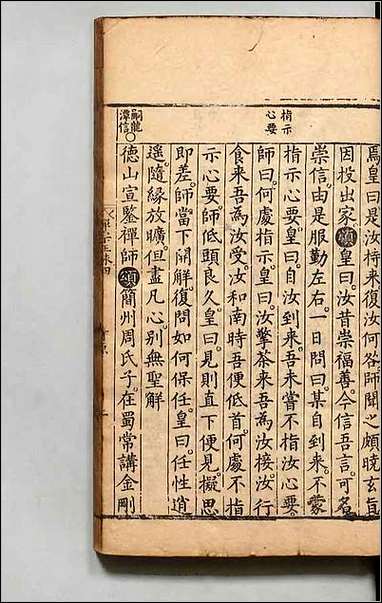 焉皇曰是汝持來復汝何咎師聞之頗曉玄旨
因投出家 頌 皇曰汝昔崇福善今信吾言可名
崇信由是服勤左右一日問曰某自到來不蒙
指示心要皇曰自汝到來吾未嘗不指汝心要
師曰何處指示皇曰汝擎茶來吾為汝接汝行
食來吾為汝受汝和南時吾便低首何處不指
示心要師低頭良久皇曰見則直下便見擬思
即差師當下開解復問如何保任皇曰任性逍
遙隨緣放曠但盡凡心別無聖解
德山宣鑒禪師 頌 簡州周氏子在蜀常講金剛
指示
心要
嗣龍
潭信